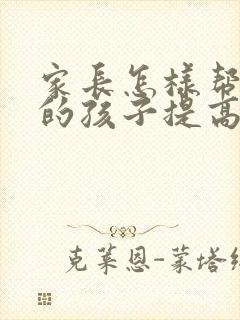 家長怎樣幫
的孩子提高
克萊恩-蒙塔